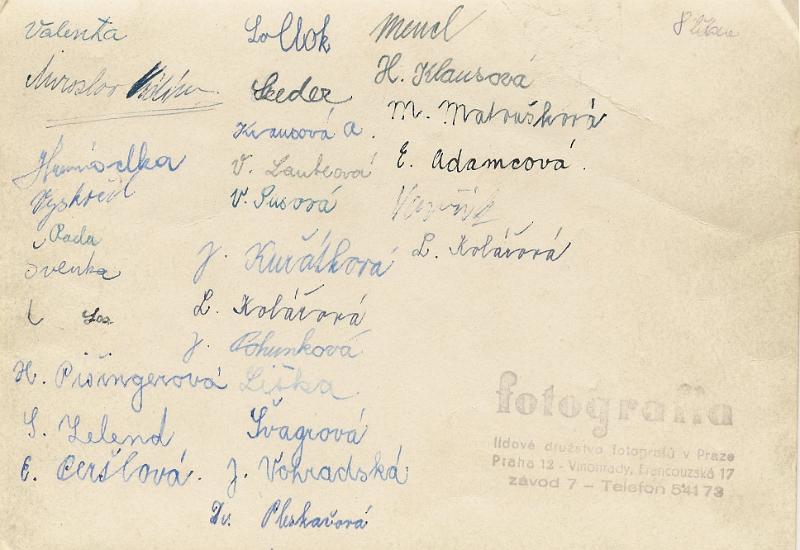 Valenta
Miroslav
Vyskočil
Rada
Svenka
H. Pišingerová
S. Zelend
E. Ceršlová.
Seeder
Krausová A.
V. Laubeová
V. Susová
J. Kuřátková
L. Kolářová
J. Pohunková
Liška
Švagrová
J. Vohradská
Pleskačová
Mencl
H. Klausová
M. Matoušková
E. Adamcová.
L. Kolářová
fotografia
lidové družstvo fotografů v Praze
Praha 12 - Vinohrady, Francouzská 17
závod 7 - Telefon 54173